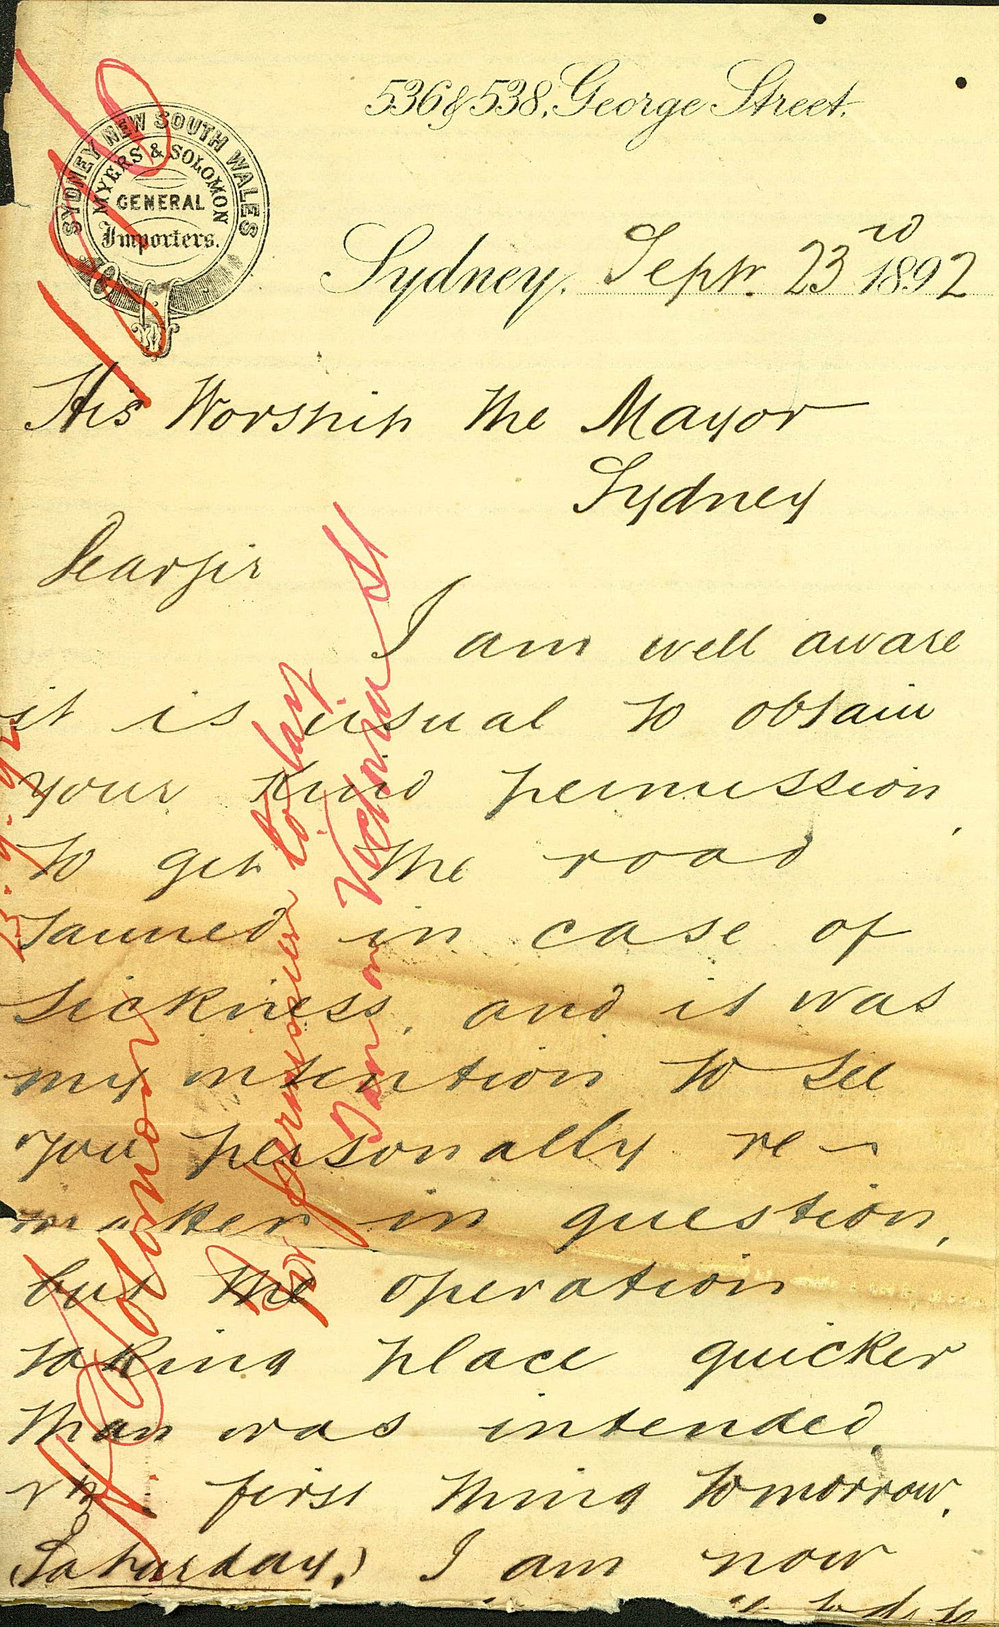 536 & 538, George Street.
SYDNEY NEW SOUTH WALES
MYERS & SOLOMON
GENERAL
Importers.
Sydney, Sept. 23rd 1892
His Worship the Mayor
Sydney
Dear Sir
I am well aware
it is usual to obtain
your kind permission,
to get the road
tanned in case of
sickness, and it was
my intention to see
you personally re-
matter in question,
but the operation
taking place quicker
than was intended,
first thing tomorrow,
(Saturday,) I am now
Solomon
For permission to lay
Tan on Victoria St